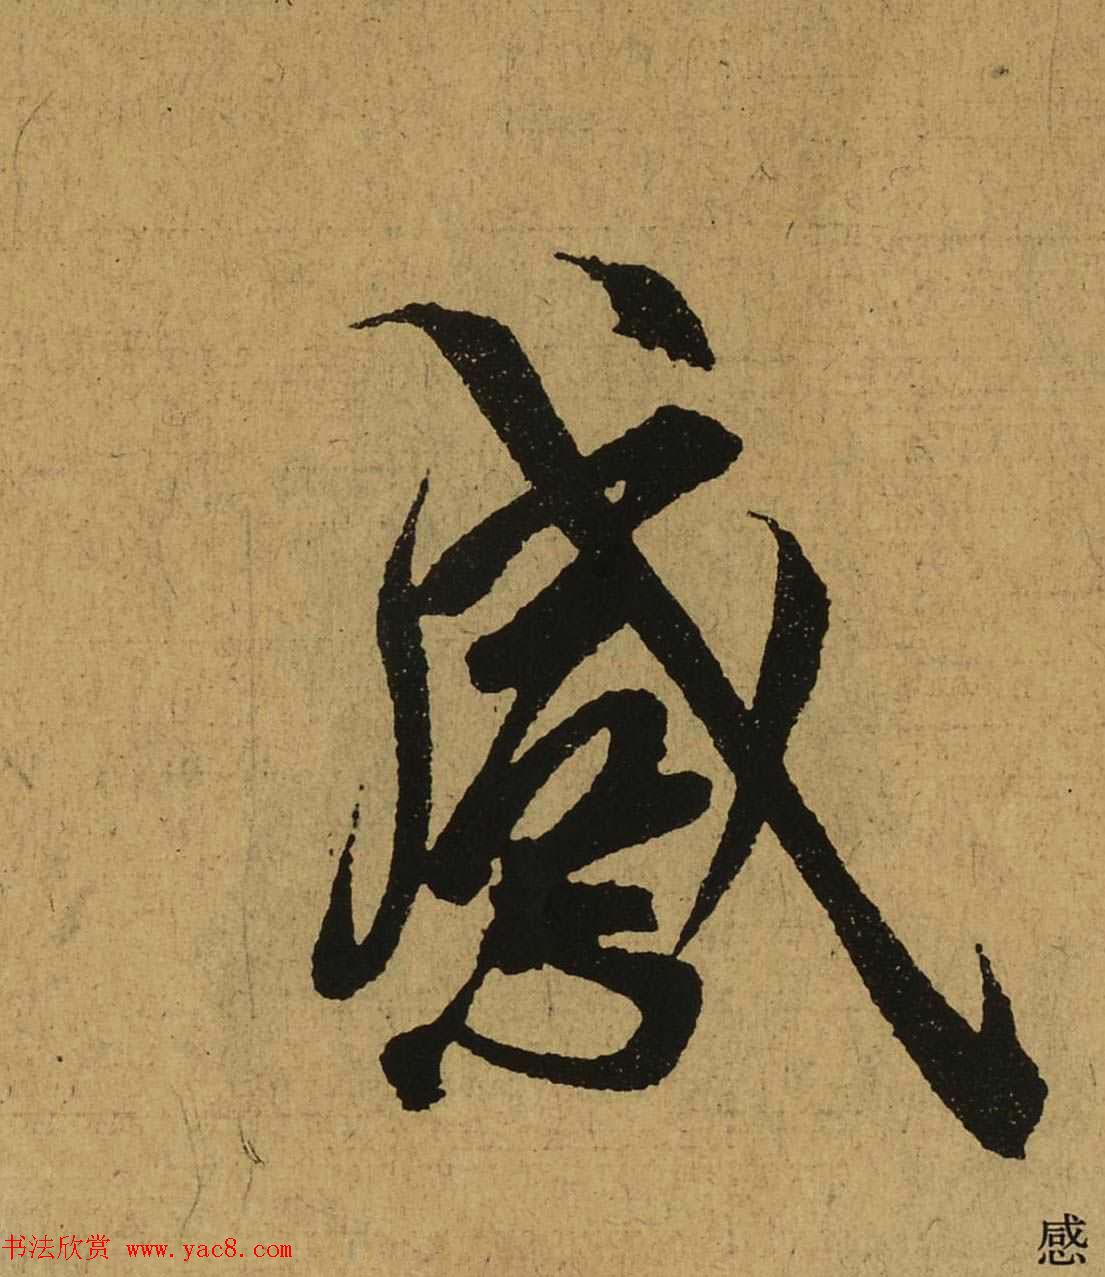 感
书法欣赏 www.yac8.com
感